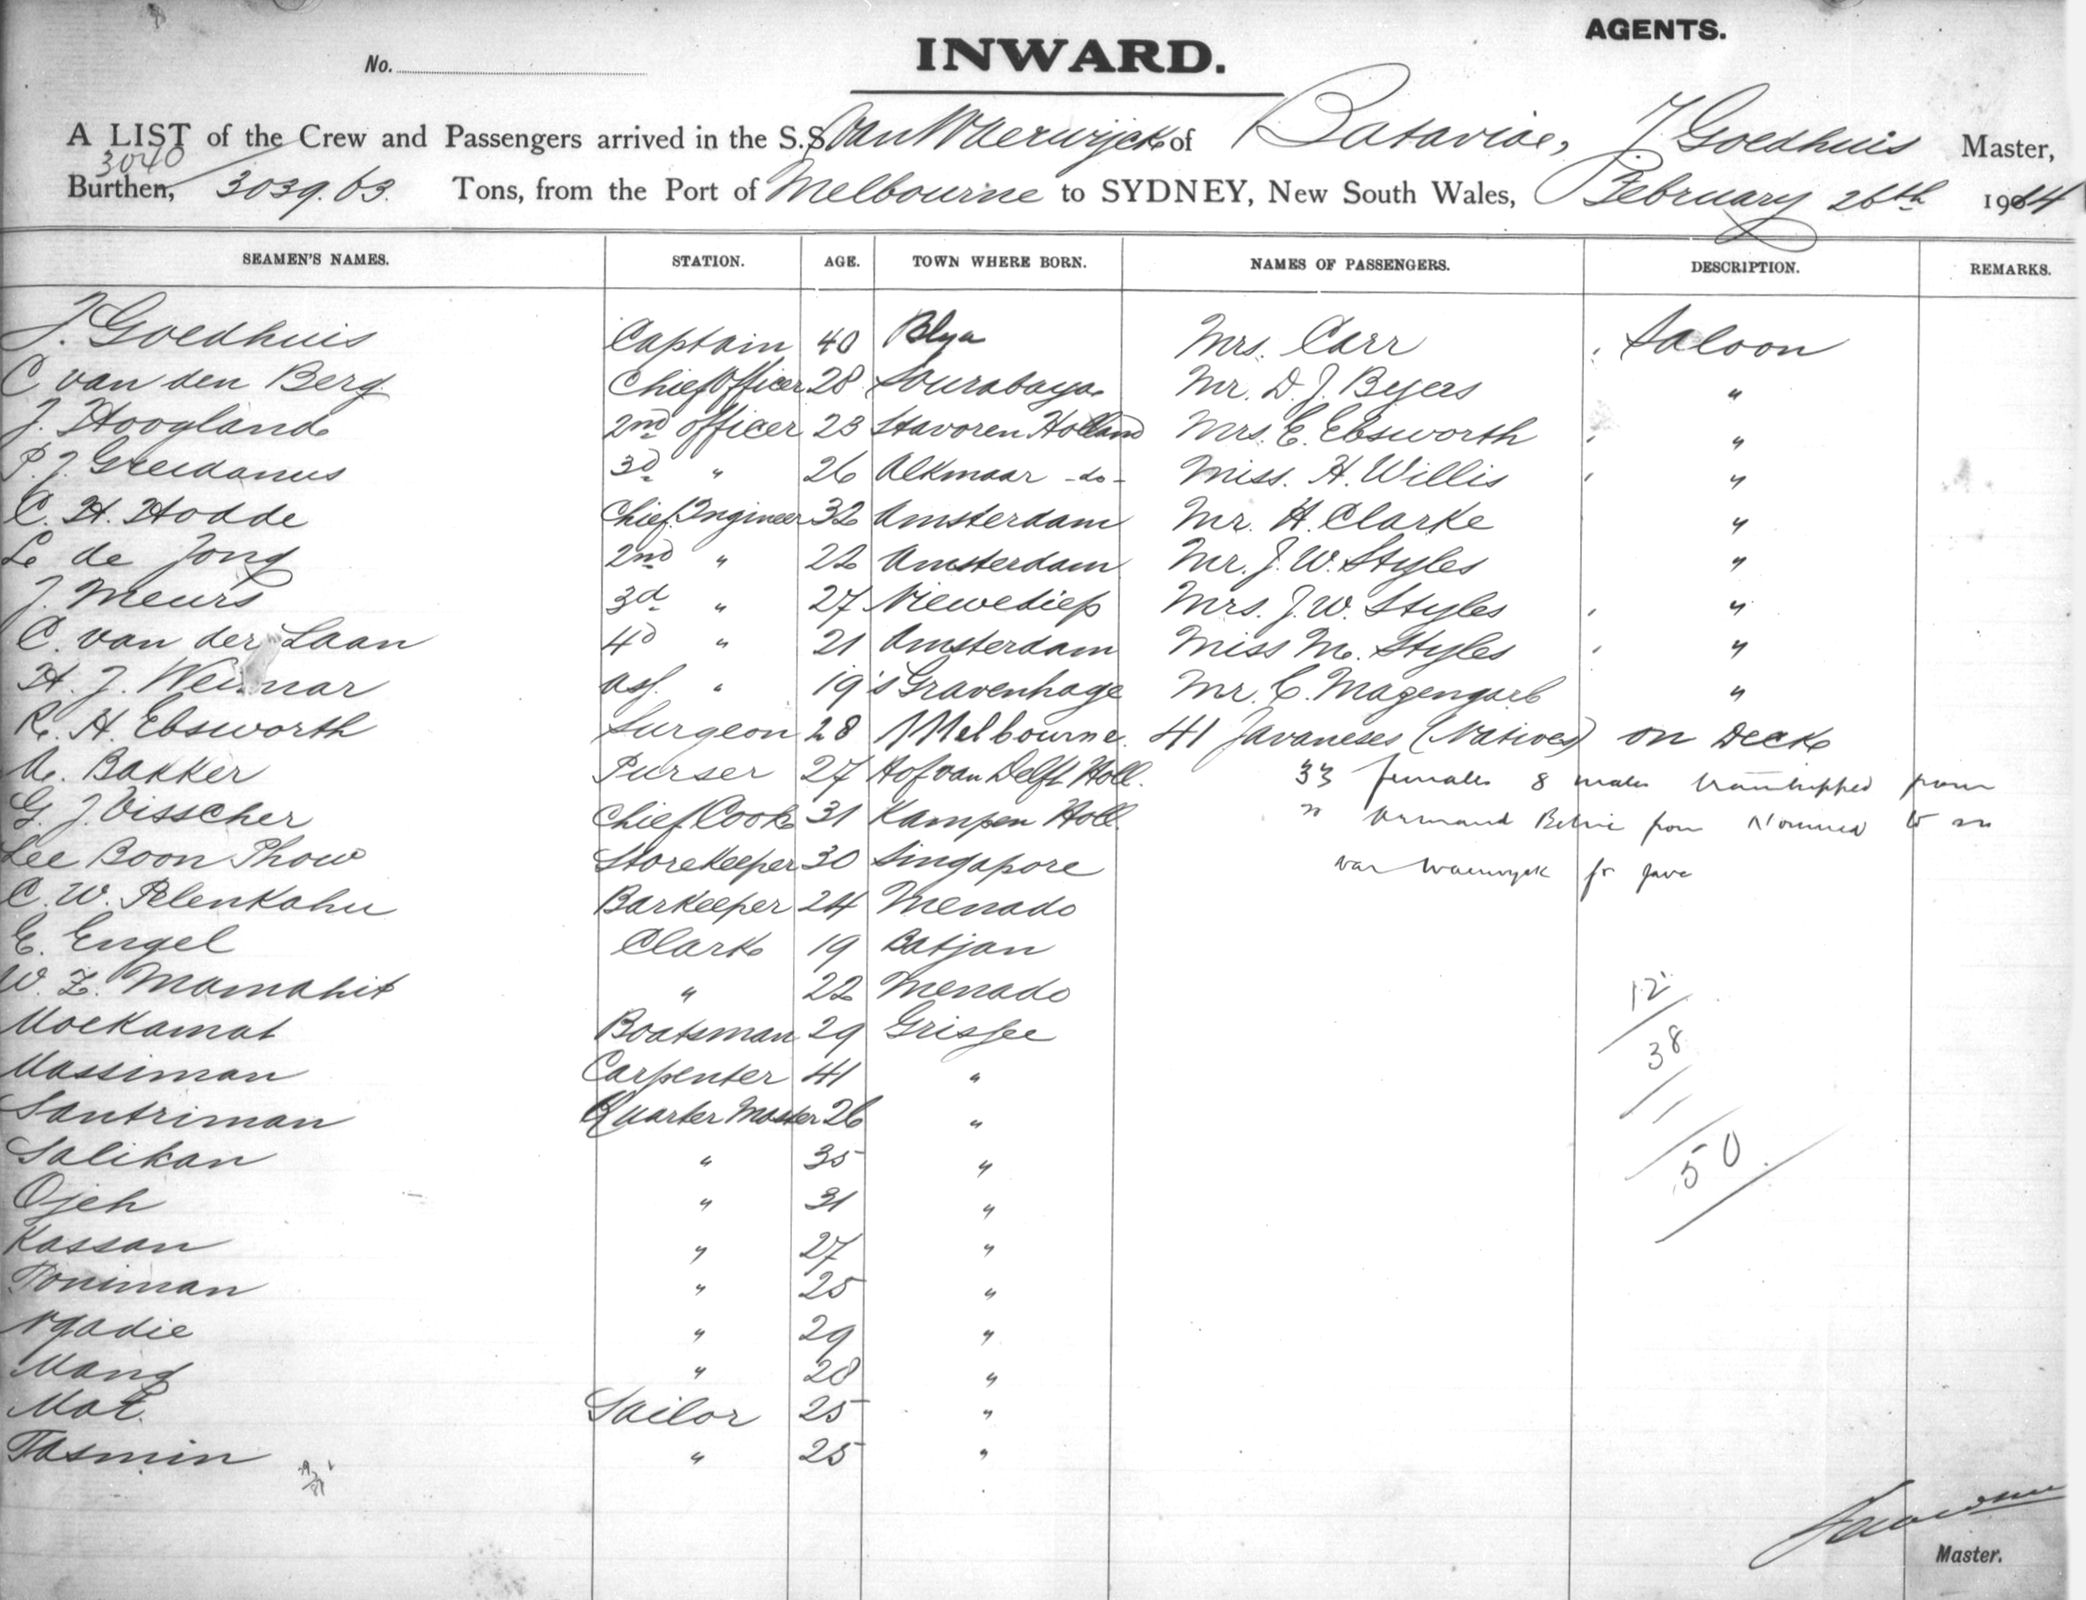 AGENTS.
No.
INWARD.
A LIST of the Crew and Passengers arrived in the S.S. Van Waerwijck of Batavia, J. Goedhuis Master,
3040
Burthen, 3039.63. Tons, from the Port of Melbourne to SYDNEY, New South Wales, February 26th 1914
SEAMEN'S NAMES. STATION. AGE. TOWN WHERE BORN. NAMES OF PASSENGERS. DESCRIPTION. REMARKS.
J. Goedhuis Captain 40 Mrs. Carr Saloon
C. van den Berg Chief Officer 28 Sourabaya Mr. D. J. Byers "
J. Hoogland 2nd officer 23 Stavoren Holland Mrs. E. Ebsworth "
P. J. Greidanus 3d " 26 Alkmaar -do- Miss. H. Willis "
C. H. Hodde Chief Engineer 32 Amsterdam Mr. H. Clarke "
L. de Jong 2nd " 22 Amsterdam Mr. J. W. Styles "
J. Meurs 3d " 27 Niewediep Mrs. J. W. Styles "
C. van der Laan 4d " 21 Amsterdam Miss M. Styles "
H. J. Weimar ass. " 19 's Gravenhage Mr. C. "
R. H. Ebsworth Surgeon 28 Melbourne. 41 Javaneses (Natives) on Deck
A. Bakker Purser 27 Hof van Delft Holl. 33 females 8 males transhipped from
G. J. Visscher Chief Cook 31 Kampen Holl. Armand Behic from Noumea to
Lee Boon Phow Storekeeper 30 Singapore van Waerwyck for Java
C. W. Pelenkahu Barkeeper 24 Menado
E. Engel Clark 19 Batjan
W. Z. Mamahit " 22 Menado
Moekamat Boatsman 29 Grissee
Massiman Carpenter 41 "
Santriman Quarter Master 26 "
Salikan " 35 "
Ojeh " 31 "
Kassan " 27 "
Toniman " 25 "
Ngadie " 29 "
Mang " 28 "
Mat. Sailor 25 "
Tasmin " 25 "
12
38
50
Master.